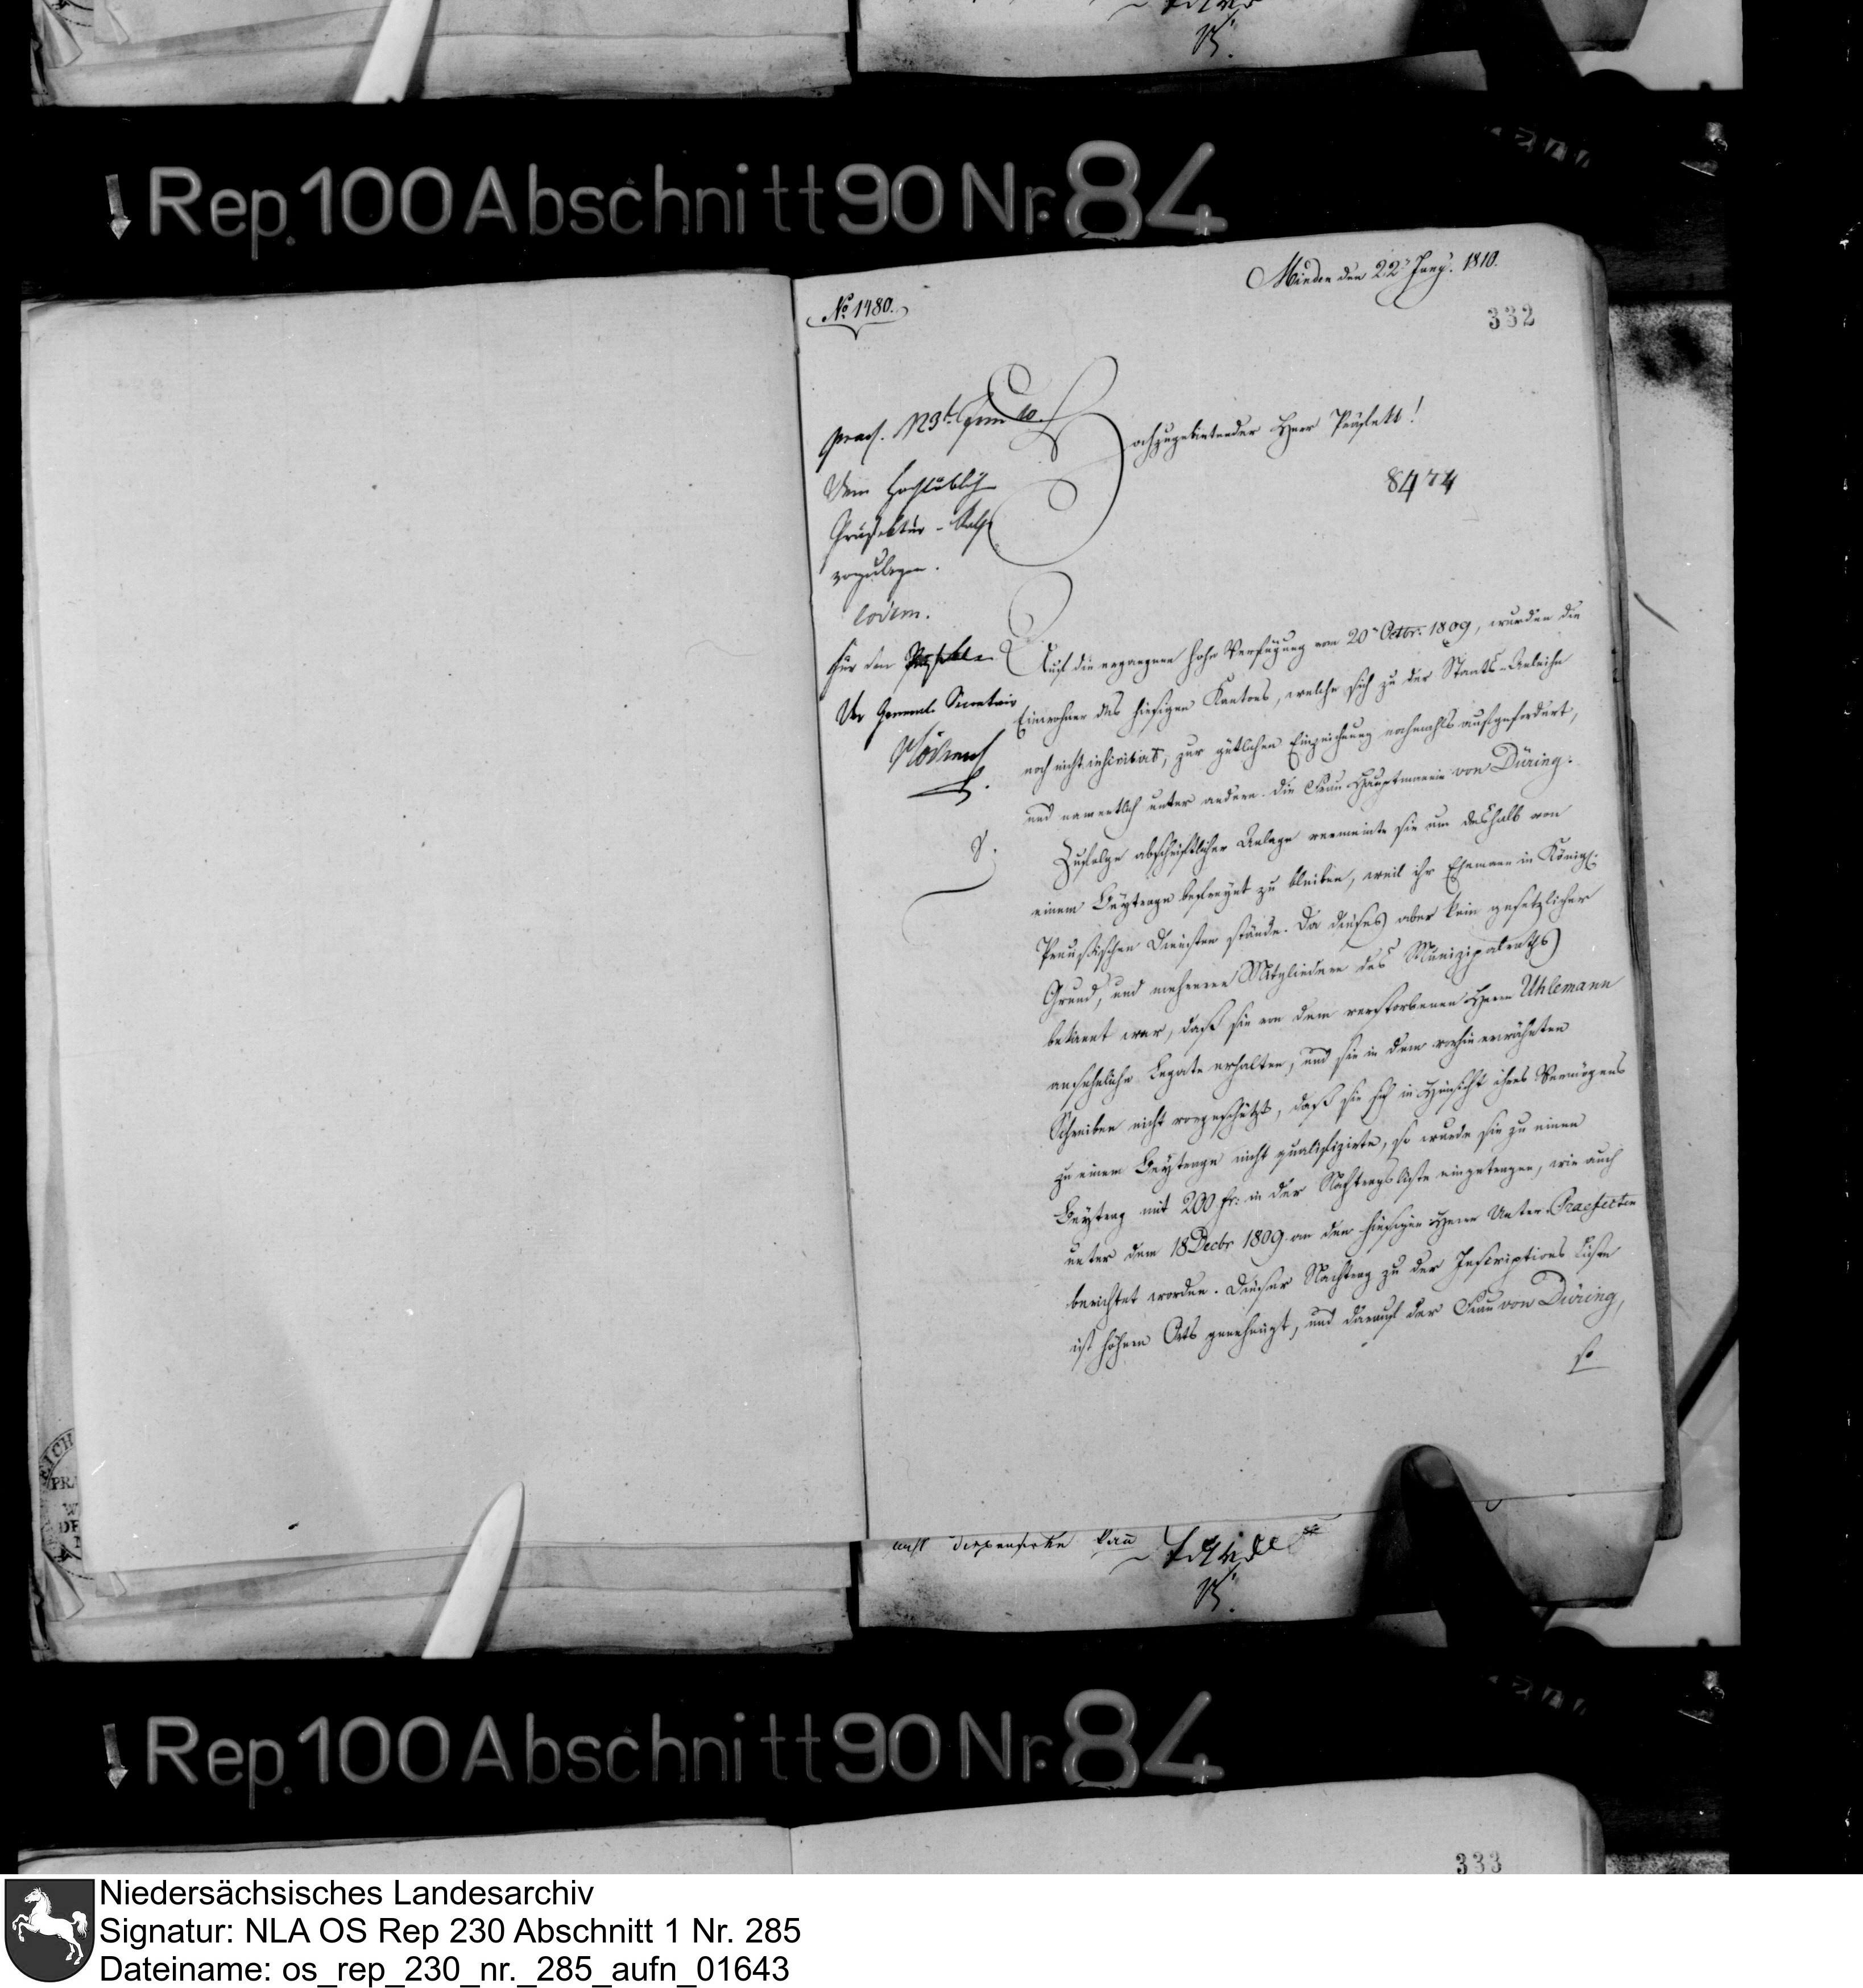 Rep. 100 Abschnitt 90 Nr. 84
Minden den 22. Juny. 1810.
No. 1480.
332
praes. 23t. Juni 10.
Hochzugebietender Herr Präfekt!
8474
Dem Hochlöblich
Präfektur-Rath
vorzulegen.
eodem.
Für den Präfekten
Der General-Secretair
Auf die ergangene hohe Verfügung vom 20n. Octbr. 1809, wurden die
Einwohner des hiesigen Kantons, welche sich zu der Staats-Anleihe
noch nicht inscribirt, zur gütlichen Einzeichnung nochmahls aufgefordert,
und namentlich unter andern die Frau Hauptmannin von Düring.
Zufolge abschriftlicher Anlage vermeinte sie um deshalb von
einem Beytrage befreyet zu bleiben, weil ihr Ehemann in Königl.
Preussischen Diensten stände. Da dieses aber kein gesetzlicher
Grund, und mehreren Mitgliedern des Munizipalraths
bekannt war, daß sie von dem verstorbenen Herrn Uhlemann
ansehnliche Legate erhalten, und sie in dem vorhin erwähnten
Schreiben nicht vorgeschützt, daß sie sich in Hinsicht ihres Vermögens
zu einem Beytrage nicht qualifizirte, so wurde sie zu einen
Beytrag mit 200 fr: in der Nachtragsliste eingetragen, wie auch
unter dem 18 Decbr 1809 an den hiesigen Herrn Unter-Praefecten
berichtet worden. Dieser Nachtrag zu der Inscriptions Liste
ist höhern Orts genehmigt, und darauf der Frau von Düring,
so
nicht dispensirten kan
Rep. 100 Abschnitt 90 Nr. 84
333
Niedersächsisches Landesarchiv
Signatur: NLA OS Rep 230 Abschnitt 1 Nr. 285
Dateiname: os_rep_230_nr._285_aufn_01643